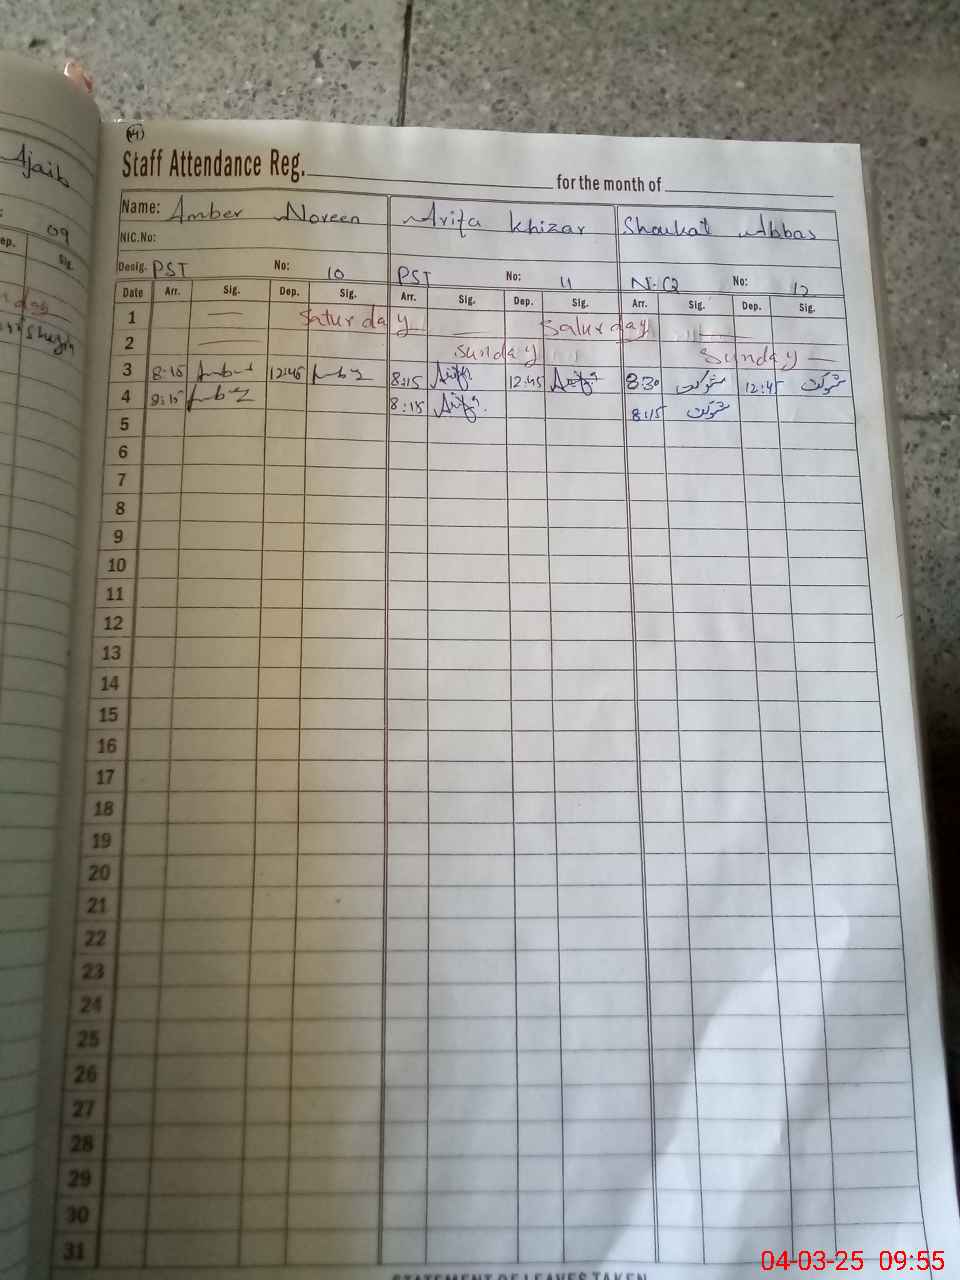 (14)
Ajaib
09
ep. Sig.
Staff Attendance Reg. for the month of
Name: Amber Noreen Arifa Khizar Shoukat Abbas
NIC.No:
Desig. PST No: 10 PST No: 11 No: 12
Date Arr. Sig. Dep. Sig. Arr. Sig. Dep. Sig. Arr. Sig. Dep. Sig.
1 Saturday Saturday
2 Sunday Sunday
3 8:15 12:45 8:15 12:45 8:30 شوکت 12:45 شوکت
4 8:15 8:15 8:15 شوکت
5
6
7
8
9
10
11
12
13
14
15
16
17
18
19
20
21
22
23
24
25
26
27
28
29
30
31
STATEMENT OF LEAVES TAKEN
04-03-25 09:55